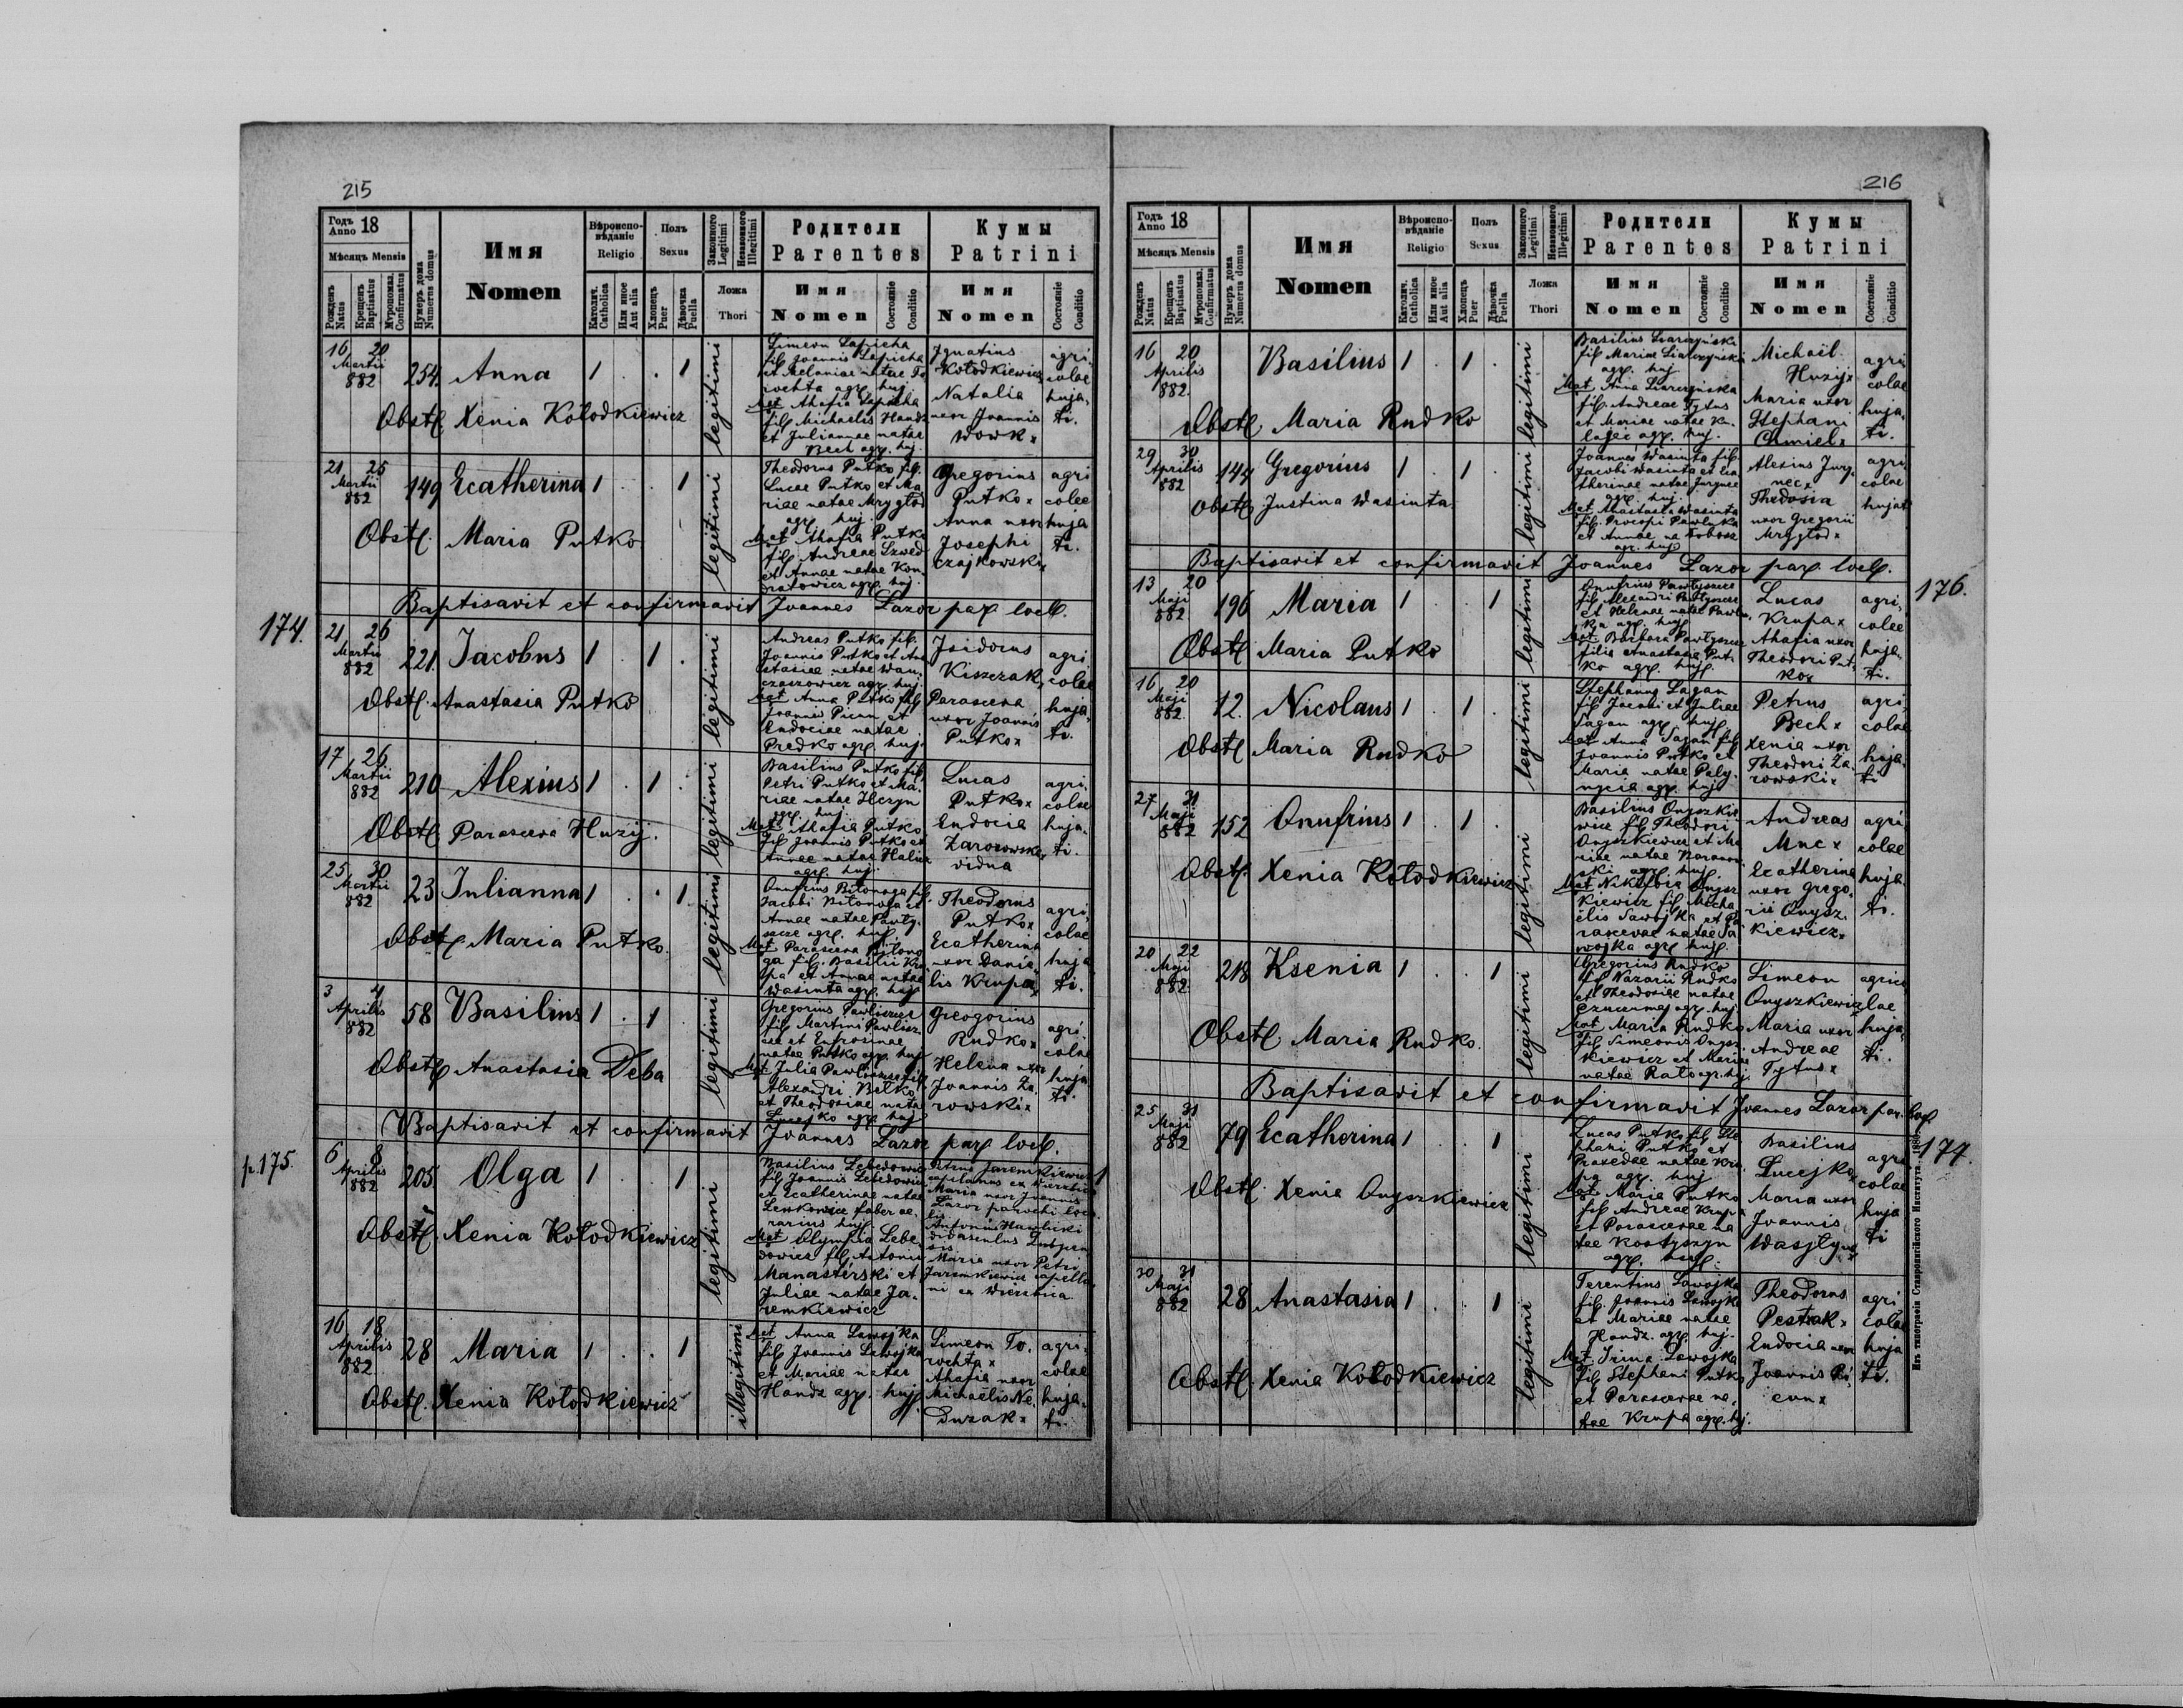 215
Годъ 18
Anno
Мѣсяцъ Mensis
Рожденъ Natus
Крещенъ Baptisatus
Мѵропомаз. Confirmatus
Нумеръ дома Numerus domus
Имя
Nomen
Вѣроиспо-
вѣданіе
Religio
Католич. Catholica
Или иное Aut alia
Полъ
Sexus
Хлопецъ Puer
Дѣвочка Puella
Законного Legitimi
Незаконного Illegitimi
Ложа
Thori
Родители
Parentes
Имя
Nomen
Состояніе Conditio
Кумы
Patrini
Имя
Nomen
Состояніе Conditio
16 20
Martii
882
254
Anna
1 . . 1
legitimi
Simeon Lapicha
fil Joannis Lapicha
et Melaniae natae To
rochta agr. huj.
Mat Ahafia Lapicha
fil Michaelis Handz
et Juliannae natae
Bech agr. huj.
Ignatius
Kołodkiewicz
Natalia
uxor Joannis
Wowk x
agri
colae
huja
ti.
Obstt. Xenia Kołodkiewicz
21 25
Martii
882
149
Ecatherina
1 . . 1
legitimi
Theodorus Putko fil.
Lucae Putko et Ma
riae natae Mrygłod
agr. huj.
Mat Ahafia Putko
fil. Andreae Szwed
et Annae natae Kon
dratowicz agr. huj.
Gregorius
Putko x
Anna uxor
Josephi
Czajkowski x
agri
colae
huja
ti.
Obstt. Maria Putko
Baptisavit et confirmavit Joannes Lazor par. loci.
174.
21 26
Martii
882
221.
Jacobus
1 . 1 .
legitimi
Andreas Putko fil.
Joannis Putko et Ana
stasiae natae Wan
czaszowicz agr. huj.
Mat Anna Putko fil
Joannis Picun et
Eudociae natae
Predko agr. huj.
Isidorus
Kiszczak x
Parascena
uxor Joannis
Putko x
agri
colae
huja
ti.
Obstt. Anastasia Putko
17 26
Martii
882
210
Alexius
1 . 1 .
legitimi
Basilius Putko fil.
Petri Putko et Ma
riae natae
agr. huj.
Mat Ahafia Putko
fil Joannis Putko et
Annae natae
agr. huj.
Lucas
Putko x
Eudocia
Zarowska x
vidua
agri
colae
huja
ti.
Obstt. Parascena Huzij.
25 30
Martii
882
23
Julianna
1 . . 1
legitimi
Onufrius Bilonoga fil.
Jacobi Bilonoga et
Annae natae Pawły
szcze agr. huj.
Mat Parascena Bilono
ga fil. Basilii Kru
pa et Annae natae
Wasiuta agr. huj
Theodorus
Putko x
Ecatherina
uxor Danie
lis Krupa x
agri
colae
huja
ti.
Obstt Maria Putko.
3 4
Aprilis
882
58
Basilius
1 . 1
legitimi
Gregorius Pawliszcze
fil Martini Pawlisz
cze et Eufrosinae
natae Putko agr. huj
Mat Julia
Alexandri Betko
et Theodosiae natae
Lucejko agr. huj
Greogorius
Rudko x
Helena uxor
Joannis Za
rowski x
agri
colae
huja
ti.
Obstt Anastasia Deba
Baptisavit et confirmavit Joannes Lazor par. loci.
p. 175.
6 8
Aprilis
882
205
Olga
1 . . 1
legitimi
Basilius Lebedowicz
fil. Joannis Lebedowicz
et Ecatherinae natae
Lewkowicz faber ae
rarius huj.
Mat Olympia Lebe
dowicz fil. Antonii
Manasterski et
Juliae natae Ja
remkiewicz
Petrus Jaremkiewicz
capelanus ex Wierzbica
Maria uxor Joannis
Lazor parochi loca
lis
Antonius Hawlicki
didasculus
Maria uxor Petri
Jaremkiewicz capella
ni ex Wierzbica
1
Obstt. Xenia Kołodkiewicz
16 18
Aprilis
882
28
Maria
1 . . 1
illegitimi
Mat Anna Sawojka
fil Joannis Sawojka
et Mariae natae
Handz agr. huj.
Simeon To.
rochta x
Ahafia uxor
Michaelis Ne
Duzak x
agri
colae
huja
ti.
Obstt. Xenia Kołodkiewicz
216
Годъ 18
Anno
Мѣсяцъ Mensis
Рожденъ Natus
Крещенъ Baptisatus
Мѵропомаз. Confirmatus
Нумеръ дома Numerus domus
Имя
Nomen
Вѣроиспо-
вѣданіе
Religio
Католич. Catholica
Или иное Aut alia
Полъ
Sexus
Хлопецъ Puer
Дѣвочка Puella
Законного Legitimi
Незаконного Illegitimi
Ложа
Thori
Родители
Parentes
Имя
Nomen
Состояніе Conditio
Кумы
Patrini
Имя
Nomen
Состояніе Conditio
16 20
Aprilis
882.
Basilius
1 . 1 .
legitimi
Basilius Siarczyński
fil Mariae Siarczyński
agr. huj
Mat Anna Siarczyńska
fil. Andreae Tytus
et Mariae natae Ku
agr. huj.
Michaël
Huzij x
Maria uxor
Stephani
Chmiel x
agri
colae
huja
ti.
Obstt Maria Rudko
29 30
Aprilis
882
144
Gregorius
1 . 1 .
legitimi
Joannes Wasiuta fil.
Jacobi Wasiuta et Eca
therinae natae Jurynec
agr. huj.
Mat Anastasia Wasiuta
fil. Procopi Pawluka
et Annae na
agr. huj
Alexius Jury
nec x
Thedosia
uxor Gregorii
Mrygłod x
agri
colae
hujat
Obstt Justina Wasiuta
Baptisavit et confirmavit Joannes Lazor par. loci.
176.
13 20
Maji
882
196
Maria
1 . . 1
legitimi
Onufrius Pawłyszcze
fil Alexandri Pawłyszcze
et Helenae natae Pawlu
ka agr. huj
Mat Barbara Pawłyszcze
filia Anastasia Put
ko agr. huj.
Lucas
Krupa x
Ahafia uxor
Theodori Put
ko x
agri
colae
huja
ti.
Obstt Maria Putko
16 20
Maji
882
12.
Nicolaus
1 . 1 .
legitimi
Stephanus Sagan
fil Jacobi et Juliae
Sagan agr. huj
Mat Anna Sagan fil
Joannis Putko et
Maria natae Paly
agr. huj
Petrus
Bech x
Xenia uxor
Theodori Za
rowski x
agri
colae
huja
ti
Obstt Maria Rudko
27 31
Maji
882
152
Onufrius
1 . 1 .
legitimi
Basilius Onyszkie
wicz fil Theodori
Onyszkiewicz et Ma
riae natae Baranow
ski agr. huj.
Mat Nikifora Onysz
kiewicz fil Micha
elis Sawojka et Pa
rascevae natae Sa
wojka agr. huj.
Andreas
Muc x
Ecatherina
uxor Grego
rii Onysz
kiewicz x
agri
colae
huja
ti.
Obstt. Xenia Kołodkiewicz
20 22
Maji
882
218
Ksenia
1 . . 1
legitimi
Gregorius Rudko
fil Nazarii Rudko
et Theodosiae natae
agr. huj
Mat Maria Rudko
fil Simeonis Onysz
kiewicz et Mariae
natae Rato agr. huj.
Simeon
Onyszkiewicz
Maria uxor
Andreae
Tytus x
agrico
lae
huja
ti.
Obstt Maria Rudko.
Baptisavit et confirmavit Joannes Lazor par. loci.
177.
25 31
Maji
882
79
Ecatherina
1 . . 1
legitimi
Lucas Putko fil Ste
phani Putko et
Praxedae natae Kru
pa agr. huj
Mat Maria Putko
fil Andreae Krupa
et Parascevae na
tae Kostyszyn
agr. huj.
Basilius
Lucejko x
Maria uxor
Joannis
Wasylyna x
agri
colae
huja
ti
Obstt. Xenia Onyszkiewicz
30 31
Maji
882
28
Anastasia
1 . . 1
legitimi
Terentius Sawojka
fil. Joannis Sawojka
et Mariae natae
Handz. agr. huj.
Mat Irina Sawojka
fil Stephani Putko
et Parascevae na
tae Krupa agr. huj.
Theodorus
Pestrak x
Eudocia uxor
Joannis Pi
cun x
agri
colae
huja
ti.
Obstt. Xenia Kołodkiewicz
Изъ типографіи Ставропигійского Института. 1886.